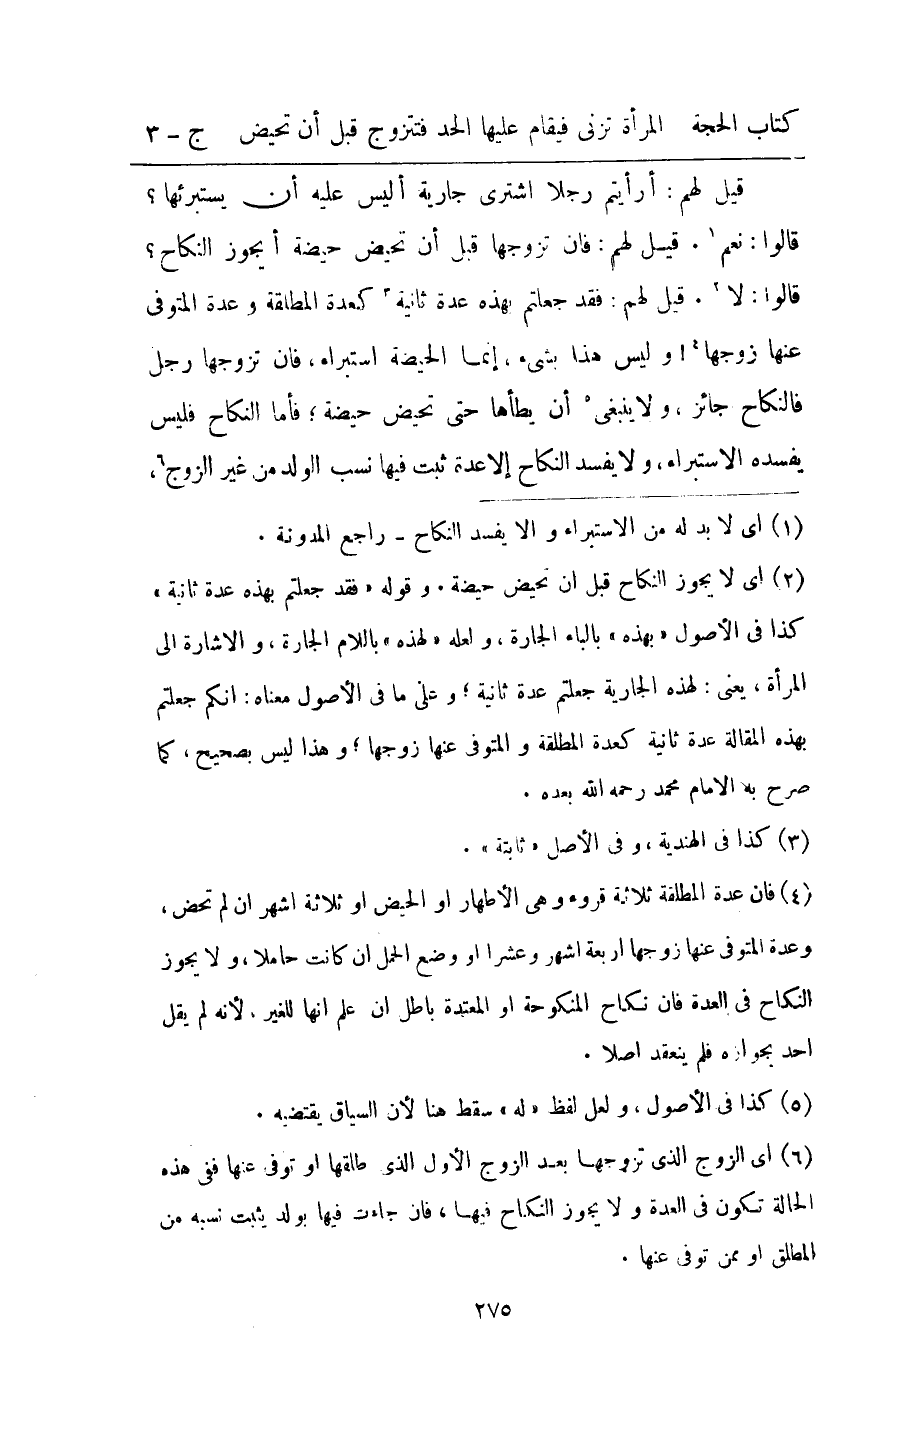 كتاب الحجة المرأة تزنى فيقام عليها الحد فتتزوج قبل أن تحيض ج - ٣
قيل لهم : أرأيتم رجلا اشترى جارية أليس عليه أن يستبرئها ؟
قالوا : نعم ١ . قيل لهم : فان تزوجها قبل أن تحيض حيضة أ يجوز النكاح ؟
قالوا : لا ٢ . قيل لهم : فقد جعلتم بهذه عدة ثانية ٣ كعدة المطلقة و عدة المتوفى
عنها زوجها ٤ ! و ليس هذا بشىء ، إنما الحيضة استبراء ، فان تزوجها رجل
فالنكاح جائز ، و لا ينبغى ٥ أن يطأها حتى تحيض حيضة ؛ فأما النكاح فليس
يفسده الاستبراء ، و لا يفسد النكاح إلا عدة ثبت فيها نسب الولد من غير الزوج ٦ ،
(١) اى لا بد له من الاستبراء و الا يفسد النكاح - راجع المدونة .
(٢) اى لا يجوز النكاح قبل ان تحيض حيضة . و قوله « فقد جعلتم بهذه عدة ثانية »
كذا فى الأصول « بهذه » بالباء الجارة ، و لعله « لهذه » باللام الجارة ، و الاشارة الى
المرأة ، يعنى : لهذه الجارية جعلتم عدة ثانية ؛ و على ما فى الأصول معناه : انكم جعلتم
بهذه المقالة عدة ثانية كعدة المطلقة و المتوفى عنها زوجها ؛ و هذا ليس بصحيح ، كما
صرح به الامام محمد رحمه الله بعده .
(٣) كذا فى الهندية ، و فى الأصل « ثابتة » .
(٤) فان عدة المطلقة ثلاثة قروء و هى الأطهار او الحيض او ثلاثة اشهر ان لم تحض ،
وعدة المتوفى عنها زوجها اربعة اشهر وعشرا او وضع الحمل ان كانت حاملا ، و لا يجوز
النكاح فى العدة فان نكاح المنكوحة او المعتدة باطل ان علم انها للغير ، لأنه لم يقل
احد بجوازه فلم ينعقد اصلا .
(٥) كذا فى الأصول ، و لعل لفظ « له » سقط هنا لأن السياق يقتضيه .
(٦) اى الزوج الذى تزوجها بعد الزوج الأول الذى طلقها او توفى عنها ففى هذه
الحالة تكون فى العدة و لا يجوز النكاح فيها ، فان جاءت فيها بولد يثبت نسبه من
المطلق او ممن توفى عنها .
٢٧٥